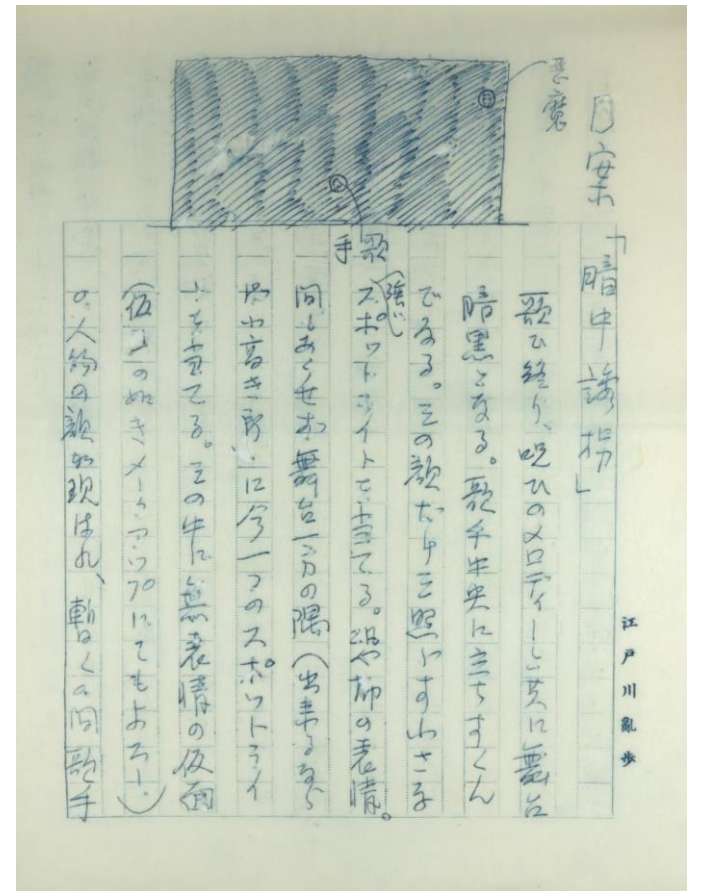 案
「暗中誘拐」
悪魔
歌手
歌ひ終り、呪ひのメロディーと共に舞台
暗黒となる。歌手中央に立ちすくん
でゐる。その顔だけを照らす小さな
スポットライトを当てる。恐怖の表情。
間もあらせず舞台一方の隅(出来るなら
高き所)に今一つのスポットライ
トを当てる。その中に無表情の仮面
(仮面の如きメークアップにてもよろし)
の人物の顔が現はれ、暫くの間歌手
江戸川亂歩